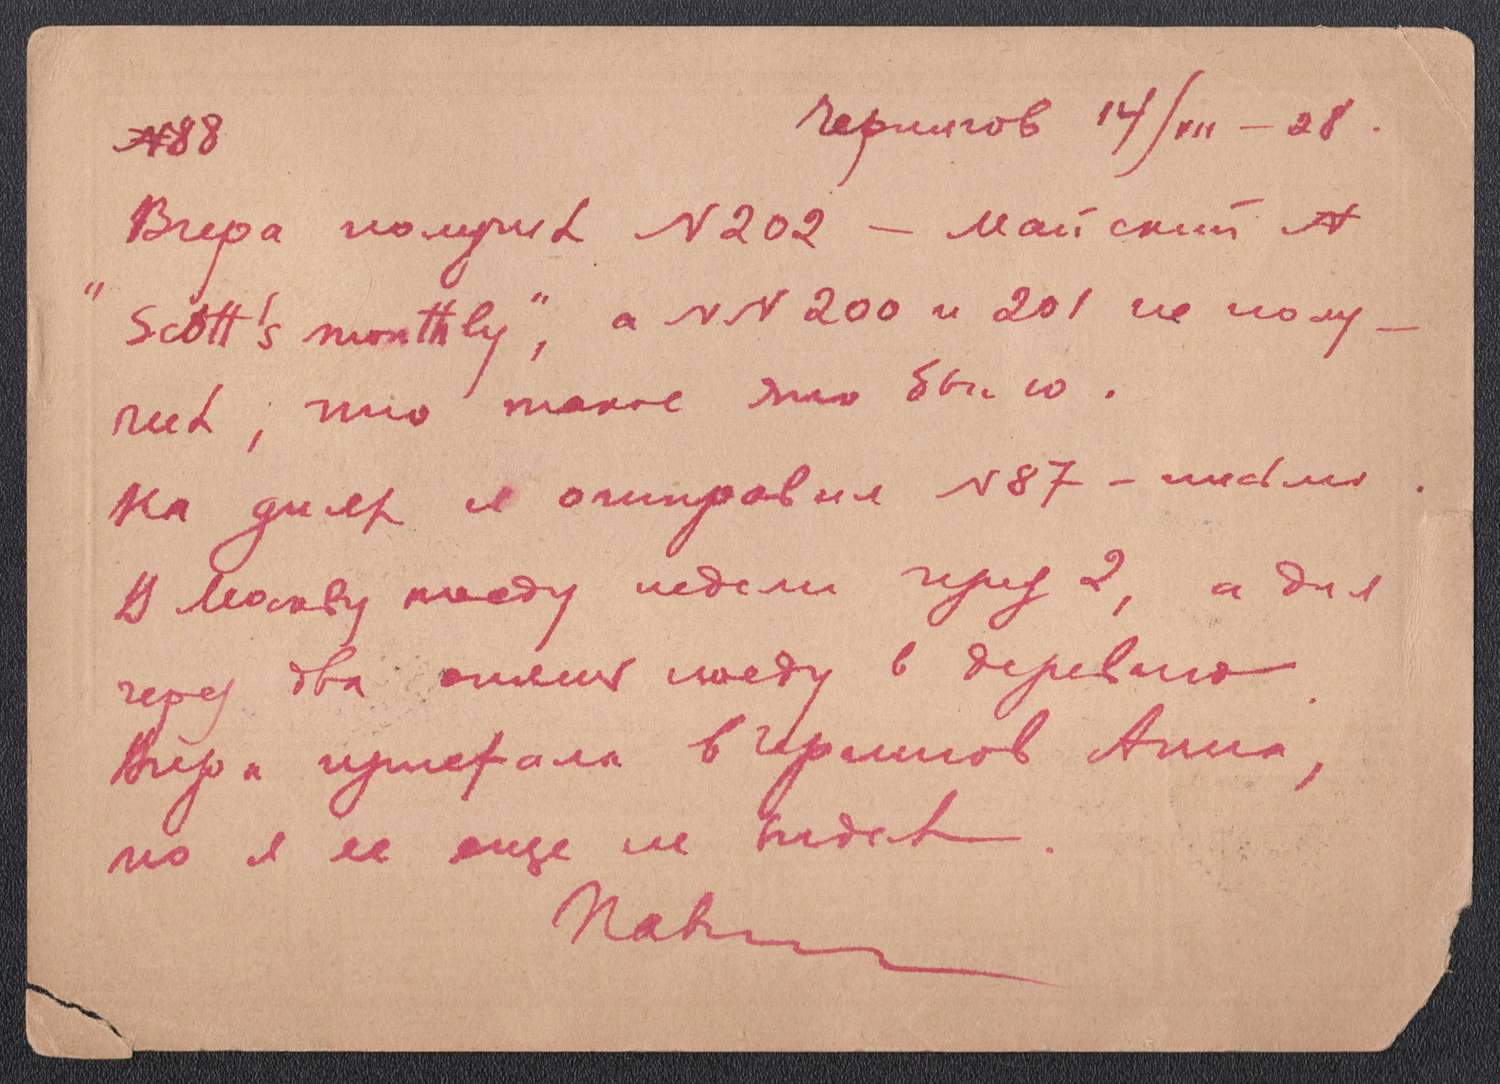 N88
Чернигов 14/XII – 28.
Вчера получил N202 – майский N
"Scott's monthly", а NN 200 и 201 не полу–
чил, что такое это было.
На днях я отправил N87 – письмо.
В Москву поеду недели через 2, а дня
через два опять поеду в деревню.
Вчера приехала в Чернигов Анна,
но я ее еще не видел.
Павел